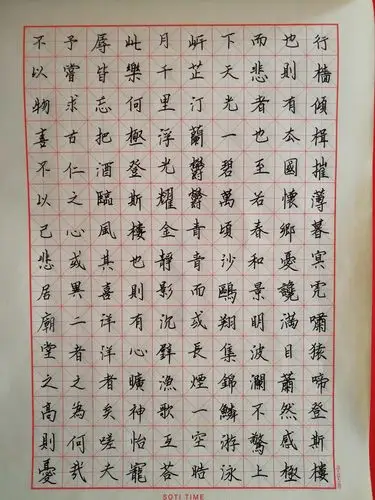 行檣傾楫摧薄暮冥虎嘯猿啼登斯樓
也則有去國懷鄉憂讒滿目蕭然感極
而悲者也至若春和景明波瀾不驚上
下天光一碧萬頃沙鷗翔集錦鱗游泳
岸芷汀蘭鬱鬱青青而或長煙一空皓
月千里浮光耀金靜影沉璧漁歌互答
此樂何極登斯樓也則有心曠神怡寵
辱皆忘把酒臨風其喜洋洋者矣嗟夫
予嘗求古仁之心或異二者之為何哉
不以物喜不以己悲居廟堂之高則憂
SOTI TIME